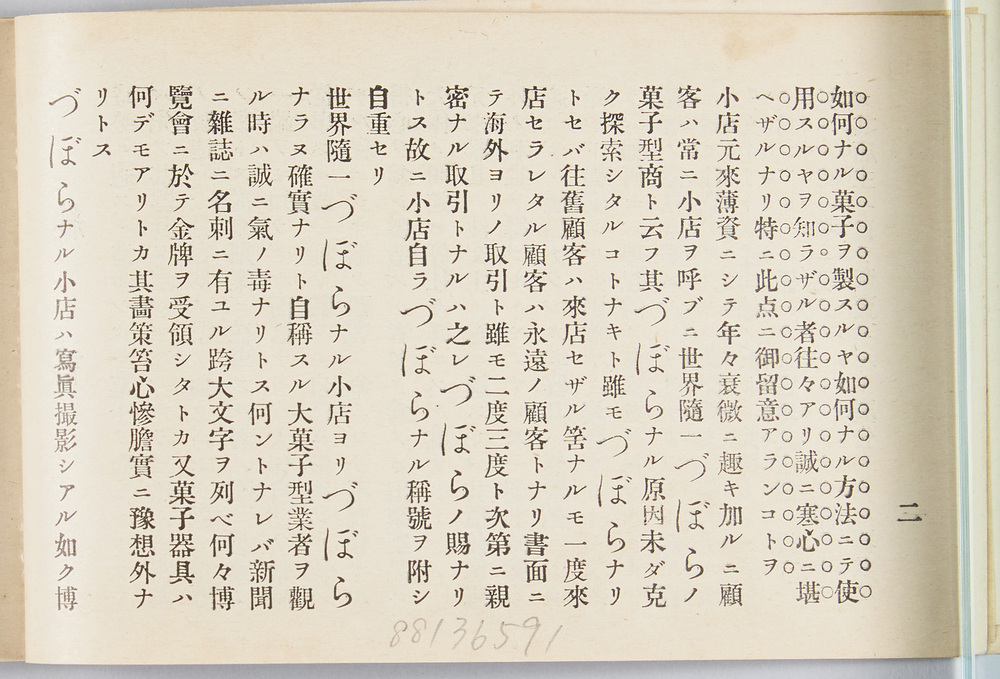 二
如何ナル菓子ヲ製スルヤ如何ナル方法ニテ使
用スルヤヲ知ラザル者往々アリ誠ニ寒心ニ堪
ヘザルナリ特ニ此点ニ御留意アランコトヲ
小店元來薄資ニシテ年々衰微ニ趣キ加ルニ顧
客ハ常ニ小店ヲ呼ブニ世界隨一づぼらノ
菓子型商ト云フ其づぼらナル原因未ダ克
ク探索シタルコトナキト雖モづぼらナリ
トセバ往舊顧客ハ來店セザル筈ナルモ一度來
店セラレタル顧客ハ永遠ノ顧客トナリ書面ニ
テ海外ヨリノ取引ト雖モ二度三度ト次第ニ親
密ナル取引トナルハ之レづぼらノ賜ナリ
トス故ニ小店自ラづぼらナル稱號ヲ附シ
自重セリ
世界隨一づぼらナル小店ヨリづぼら
ナラヌ確實ナリト自稱スル大菓子型業者ヲ觀
ル時ハ誠ニ氣ノ毒ナリトス何ントナレバ新聞
ニ雜誌ニ名刺ニ有ユル跨大文字ヲ列ベ何々博
覽會ニ於テ金牌ヲ受領シタトカ又菓子器具ハ
何デモアリトカ其畵策笤心慘膽實ニ豫想外ナ
リトス
づぼらナル小店ハ寫眞撮影シアル如ク博
88136591